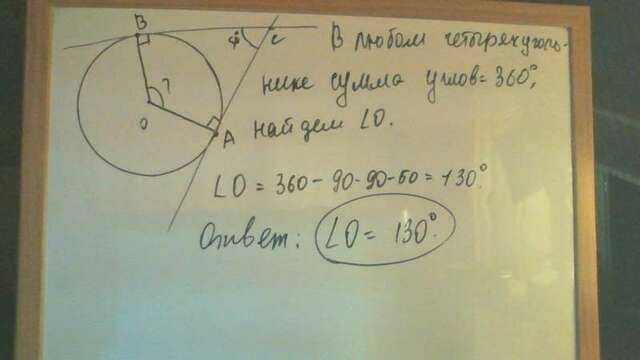 B
φ
C
?
O
A
В любом четырехуголь-
нике сумма углов = 360°,
найдем ∠O.
∠O = 360 - 90 - 90 - 50 = 130°.
Ответ: ∠O = 130°.